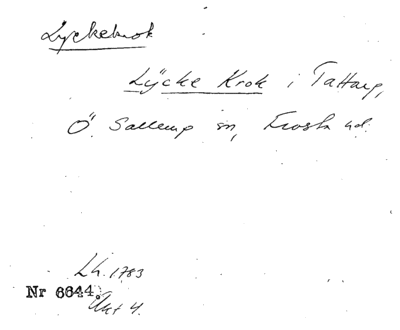 Lyckekrok
Lÿcke Krok i Tattarp,
Ö. Sallerup sn, Frosta hd.
Lh. 1783
Nr 6644.
Akt 4.